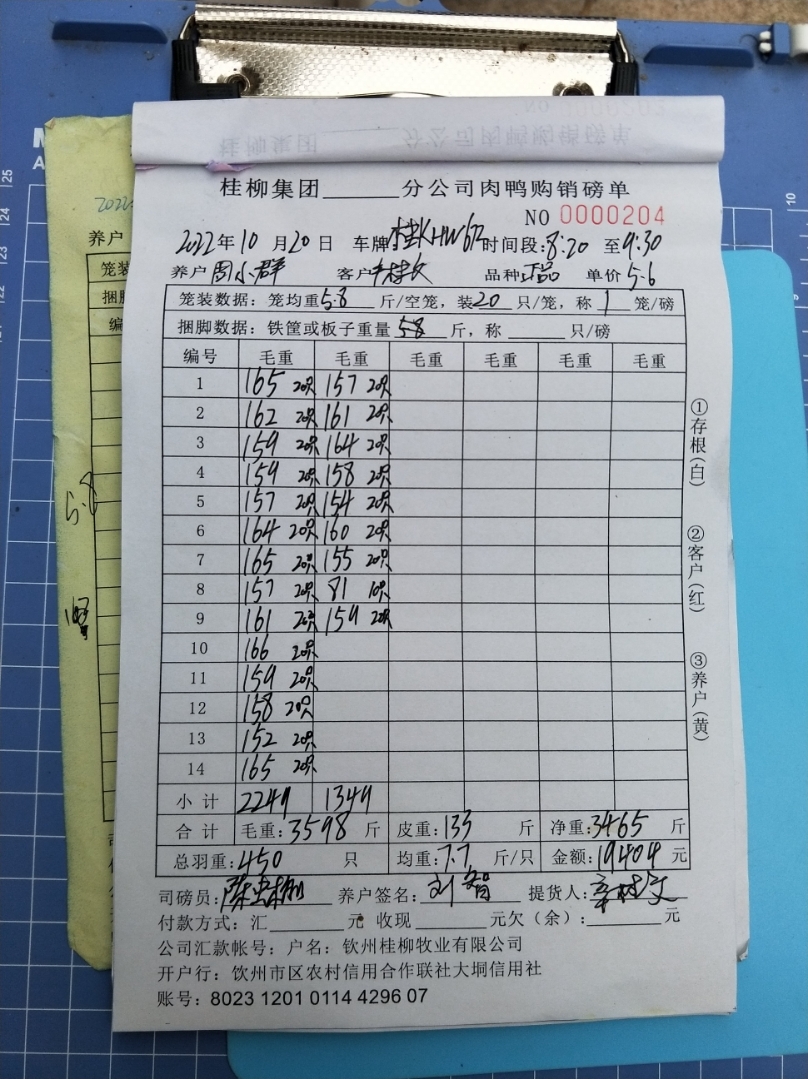 桂柳集团______分公司肉鸭购销磅单
NO 0000204
2022年10月20日 车牌 时间段:8:20 至9:30
养户 周小群 客户 品种 正品 单价 5.6
笼装数据: 笼均重5.8 斤/空笼, 装20 只/笼, 称 1 笼/磅
捆脚数据: 铁筐或板子重量 5.8 斤, 称______只/磅
编号 毛重 毛重 毛重 毛重 毛重 毛重
1 165 20只 157 20只
2 162 20只 161 20只
3 159 20只 164 20只
4 159 20只 158 20只
5 157 20只 154 20只
6 164 20只 160 20只
7 165 20只 155 20只
8 157 20只 81 10只
9 161 20只 159 20只
10 166 20只
11 159 20只
12 158 20只
13 152 20只
14 165 20只
小计 2249 1349
合计 毛重:3598 斤 皮重:133 斤 净重:3465 斤
总羽重:450 只 均重:7.7 斤/只 金额:19404 元
司磅员: 养户签名: 刘智 提货人:
付款方式: 汇______元 收现______元欠(余):______元
公司汇款帐号: 户名: 钦州桂柳牧业有限公司
开户行: 钦州市区农村信用合作联社大垌信用社
账号: 8023 1201 0114 4296 07
①存根(白)
②客户(红)
③养户(黄)
2022
养户
笼装
捆脚
编
5.8